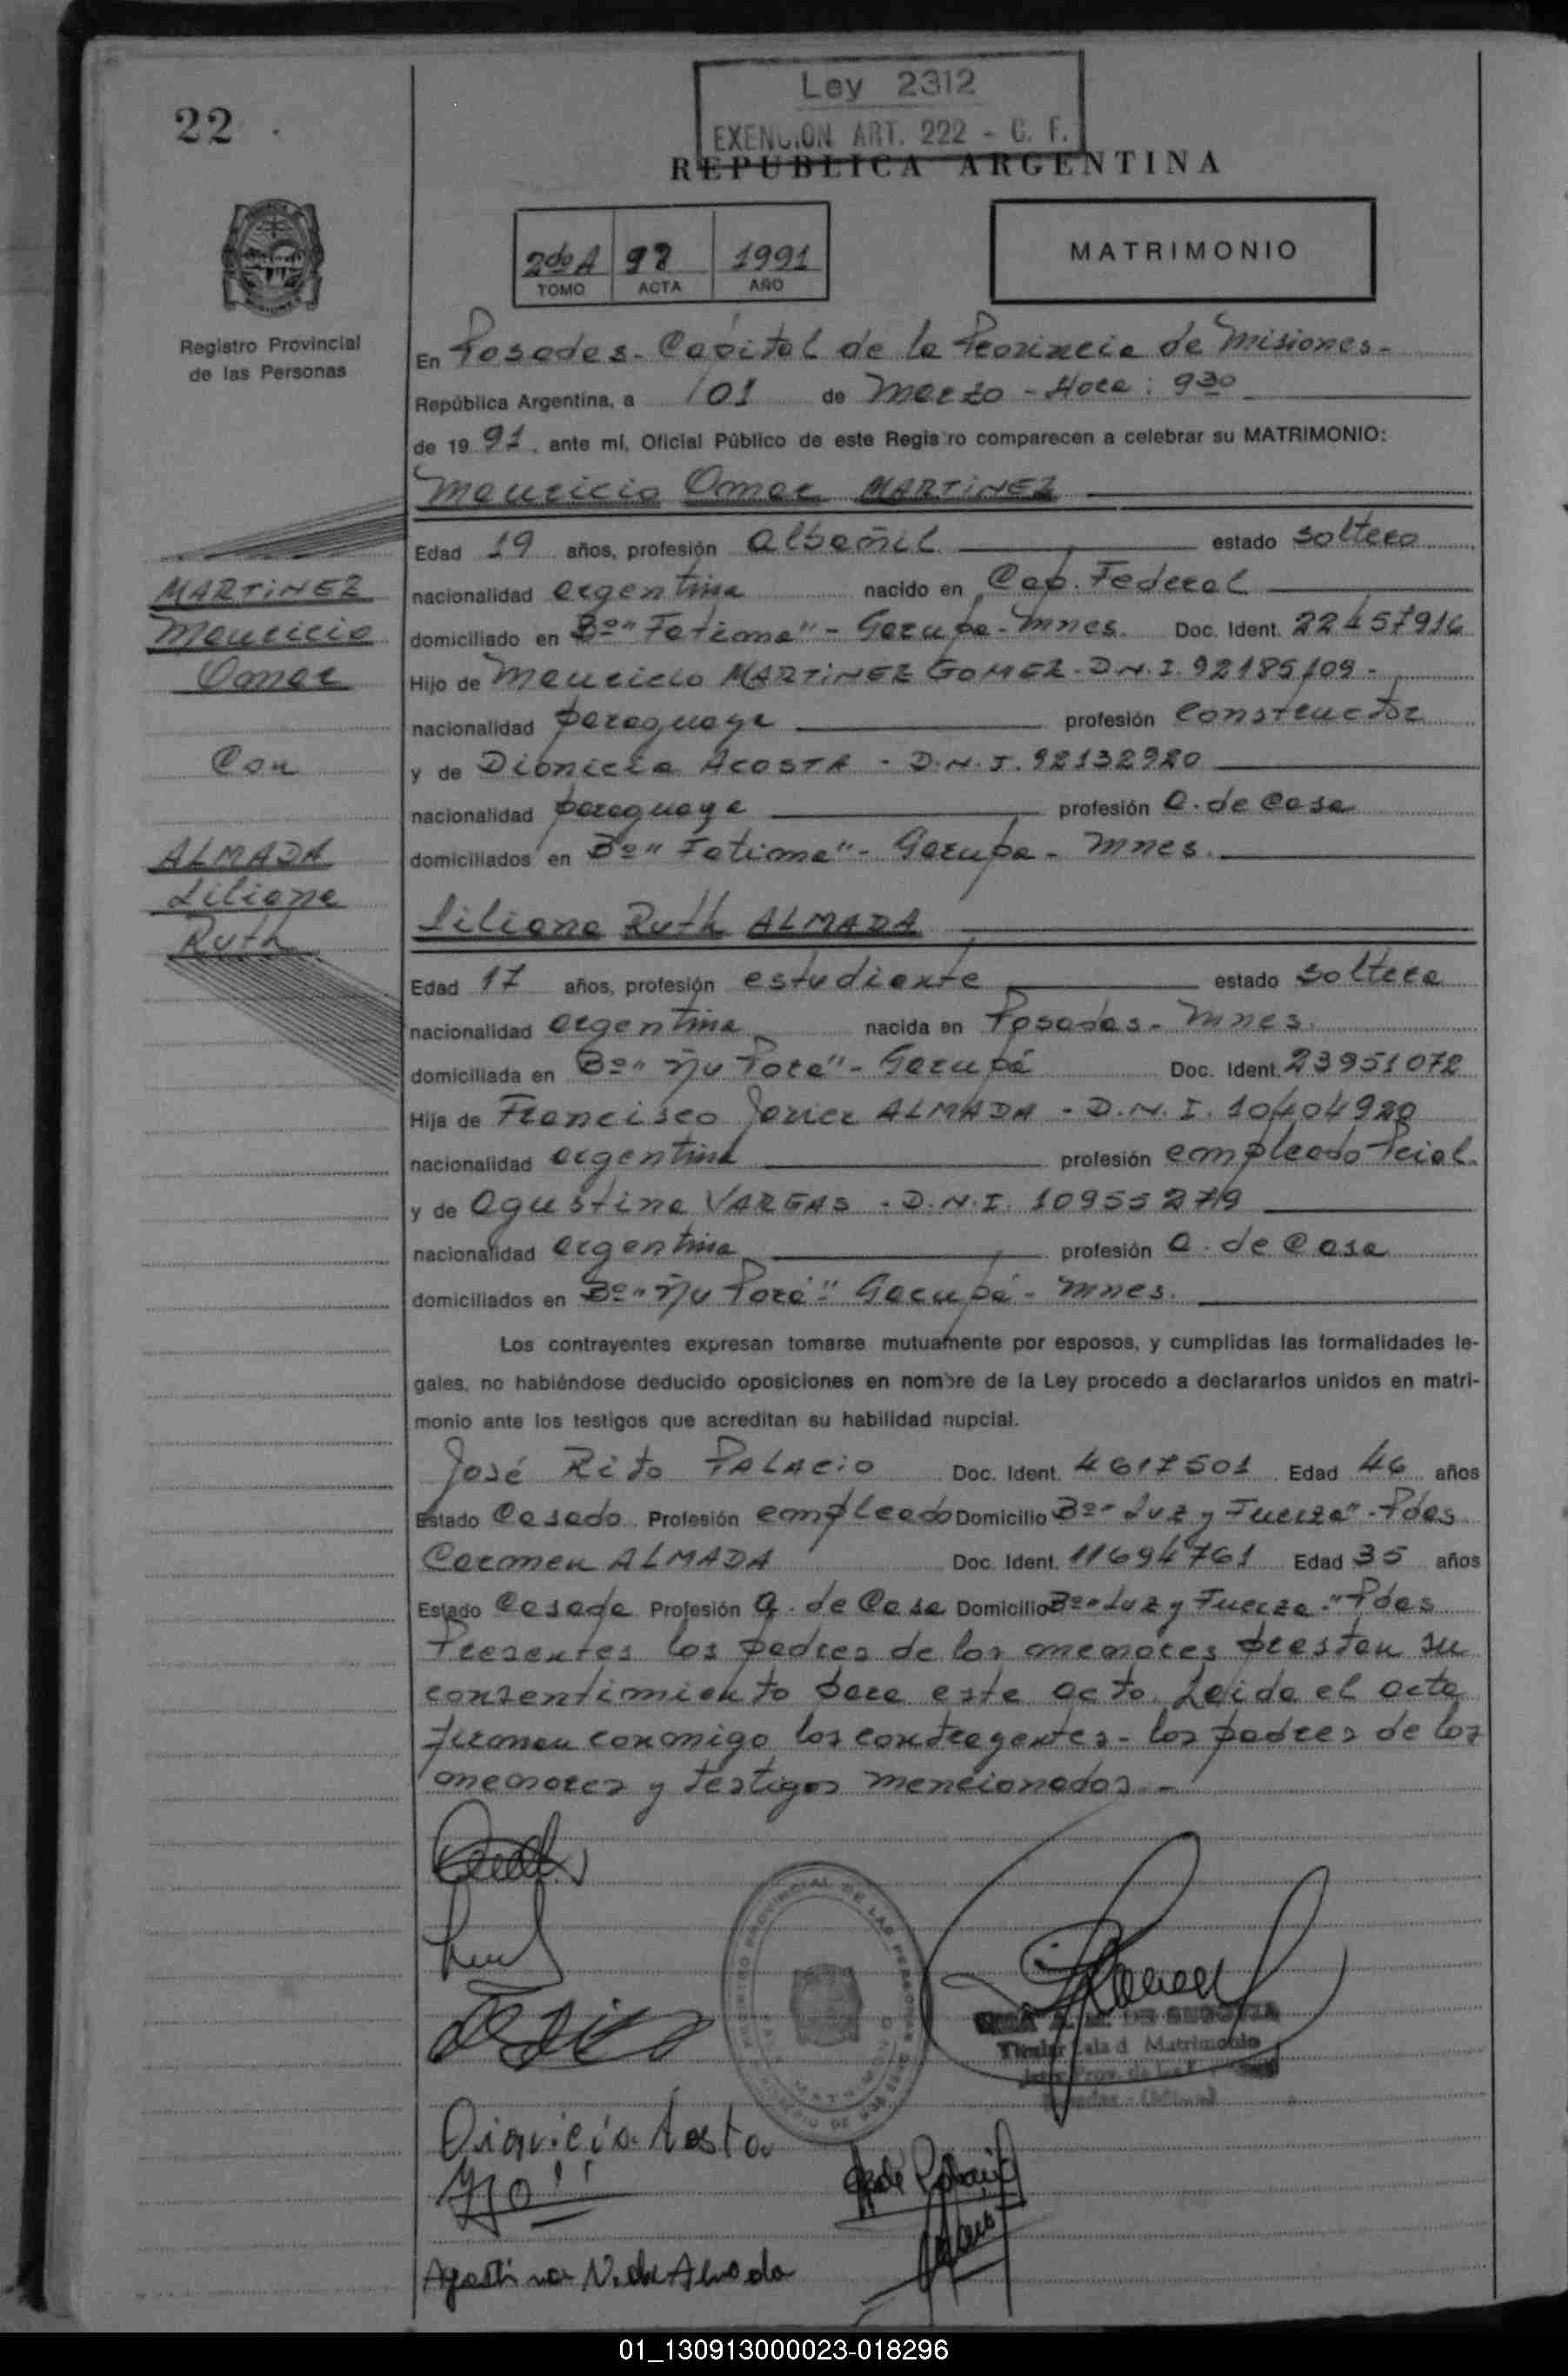 Ley 2312
EXENCION ART. 222 - C. F.
22
REPUBLICA ARGENTINA
2do A 98 1991
TOMO ACTA AÑO
MATRIMONIO
Registro Provincial
de las Personas
En Posadas - Capital de la Provincia de Misiones -
República Argentina, a 01 de Marzo - Hora: 9 30
de 19 91, ante mí, Oficial Público de este Registro comparecen a celebrar su MATRIMONIO:
Mauricio Omar MARTINEZ
Edad 19 años, profesión albañil estado soltero
nacionalidad argentina nacido en Cap. Federal
domiciliado en Bº "Fatima" - Garupa - Mnes. Doc. Ident. 22457916
Hijo de Mauricio MARTINEZ GOMEZ - D.N.I. 92185109 -
nacionalidad paraguaya profesión constructor
y de Dionicia ACOSTA - D.N.I. 92132920
nacionalidad paraguaya profesión a. de casa
domiciliados en Bº "Fatima" - Garupa - Mnes.
MARTINEZ
Mauricio
Omar
Con
ALMADA
Liliana
Ruth
Liliana Ruth ALMADA
Edad 17 años, profesión estudiante estado soltera
nacionalidad argentina nacida en Posadas - Mnes.
domiciliada en Bº "Ñu Porá" - Garupá Doc. Ident. 23951072
Hija de Francisco Javier ALMADA - D.N.I. 10404920
nacionalidad argentina profesión empleado Pcial.
y de Agustina VARGAS - D.N.I. 10955279
nacionalidad argentina profesión a. de casa
domiciliados en Bº "Ñu Porá" - Garupá - Mnes.
Los contrayentes expresan tomarse mutuamente por esposos, y cumplidas las formalidades le-
gales, no habiéndose deducido oposiciones en nombre de la Ley procedo a declararlos unidos en matri-
monio ante los testigos que acreditan su habilidad nupcial.
José Rito PALACIO Doc. Ident. 4617501 Edad 46 años
Estado Casado Profesión empleado Domicilio Bº "Luz y Fuerza" - Pdas
Carmen ALMADA Doc. Ident. 11694761 Edad 35 años
Estado Casada Profesión a. de Casa Domicilio Bº "Luz y Fuerza" - Pdas
Presentes los padres de los menores prestan su
consentimiento para este acto. Leida el acta
firman conmigo los contrayentes - los padres de los
menores y testigos mencionados. -
REGISTRO PROVINCIAL DE LAS PERSONAS
DE SEGOVIA
Titular Sala d Matrimonio
Dionicia Acosta
Agustina V. de Almada
01_130913000023-018296